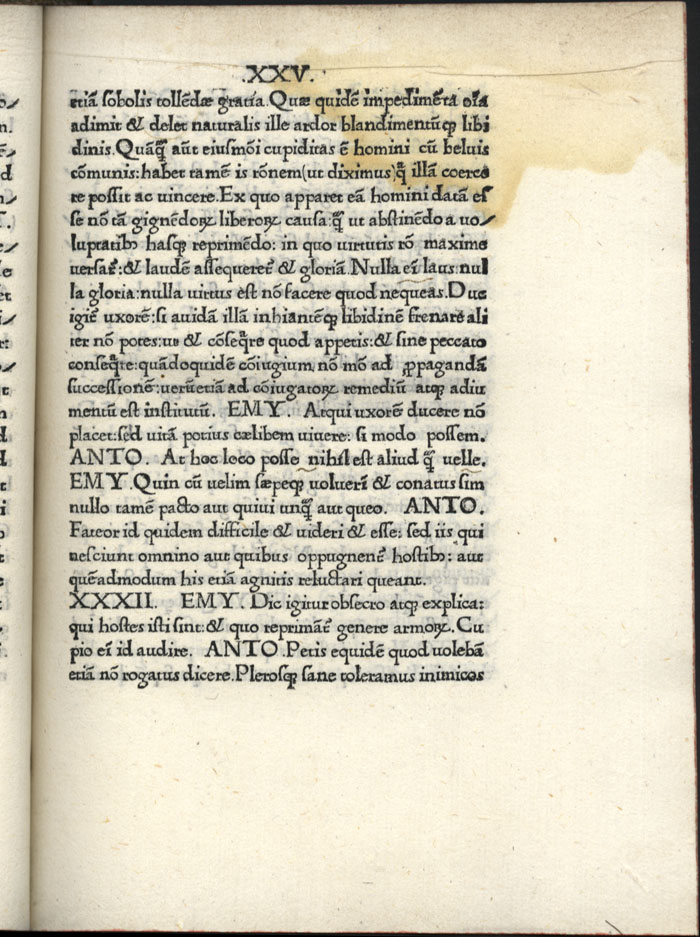 .XXV.
etiā sobolis tollēdæ gratia. Quæ quidē impedimēta oīa
adimit & delet naturalis ille ardor blandimentūq; libi
dinis. Quāq̄ aūt eiusmōi cupiditas ē homini cū beluis
cōmunis: habet tamē is rōnem (ut diximus) q̄ illā coerce
re possit ac uincere. Ex quo apparet eā homini datā es
se nō tā gignēdoꝝ liberoꝝ causa: q̄ ut abstinēdo a uo/
luptatibꝰ hasq; reprimēdo: in quo uirtutis rō maxime
uersat᷑: & laudē assequeret᷑ & gloriā. Nulla eī laus: nul
la gloria: nulla uirtus est nō facere quod nequeas. Duc
igit᷑ uxorē: si auidā illā inhiantēq; libidinē frenare ali
ter nō potes: ut & cōseq̄re quod appetis: & sine peccato
conseq̄re: quādoquidē cōiugium nō mō ad ꝓpagandā
successionē: ueruetiā ad cōiugatoꝝ remediū atq; adiu
mentū est institutū. EMY. Atqui uxorē ducere nō
placet: sed uitā potius cælibem uiuere: si modo possem.
ANTO. At hoc loco posse nihil est aliud q̄ uelle.
EMY. Quin cū uelim sæpeq; volueri & conatus sim
nullo tamē pacto aut quiui unq̄ aut queo. ANTO.
Fateor id quidem difficile & uideri & esse: sed iis qui
nesciunt omnino aut quibus oppugnenē hostibꝰ: aut
quēadmodum his etiā agnitis reluctari queant.
XXXII. EMY. Dic igitur obsecro atq; explica:
qui hostes isti sint: & quo reprimāt᷑ genere armoꝝ. Cu
pio eī id audire. ANTO. Petis equidē quod uolebā
etiā nō rogatus dicere. Plerosq; sane toleramus inimicos